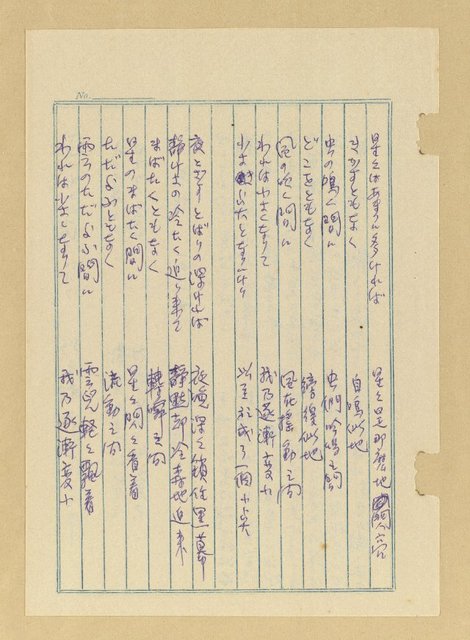 No.
星々はあまりに多ければ
ともなく
虫の鳴く間に
どこをともなく
風の吹く間に
われは小さくなりて
小さい となりにけり
夜 とばりの深ければ
静けさの冷たく迫り来て
まばたくともなく
星のまばたく間に
ただよふともなく
雲のただよふ間に
われは小さくなりて
星星是那麼地
自鳴似地
虫們吟鳴之間
徬徨似地
風在搖動之間
我乃逐漸變小
以至於成了一個小点
夜 深深鎖住黑幕
靜默卻冷森地迫來
轉瞬之間
星星閃閃看着
流動之間
雲兒輕輕飄着
我乃逐漸變小